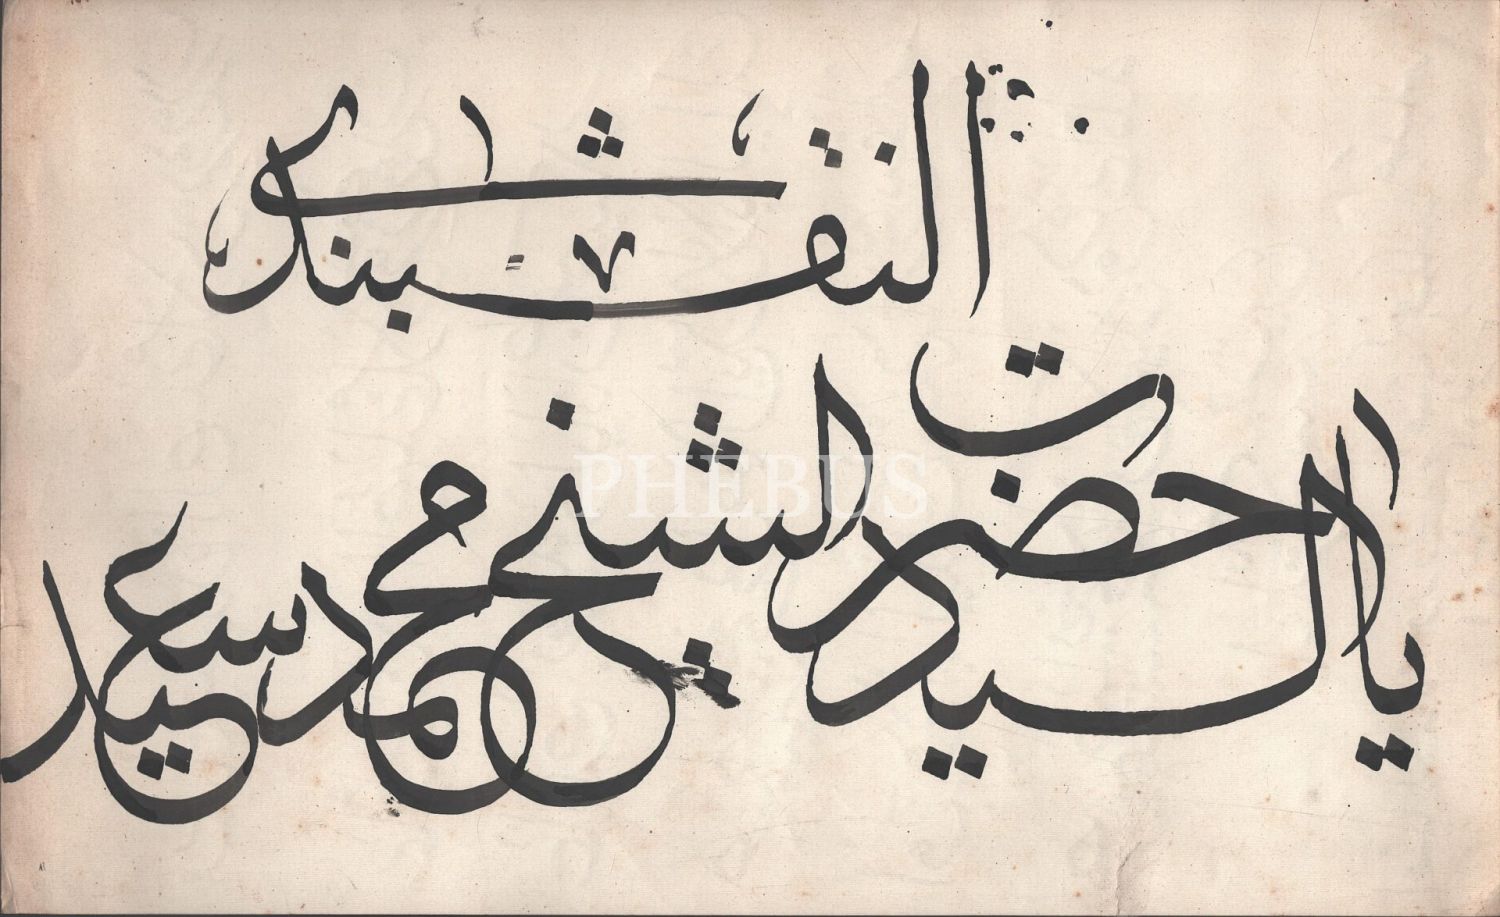 يا حضرت السيد الشيخ محمد سعيد
النقشبندى
PHEBUS